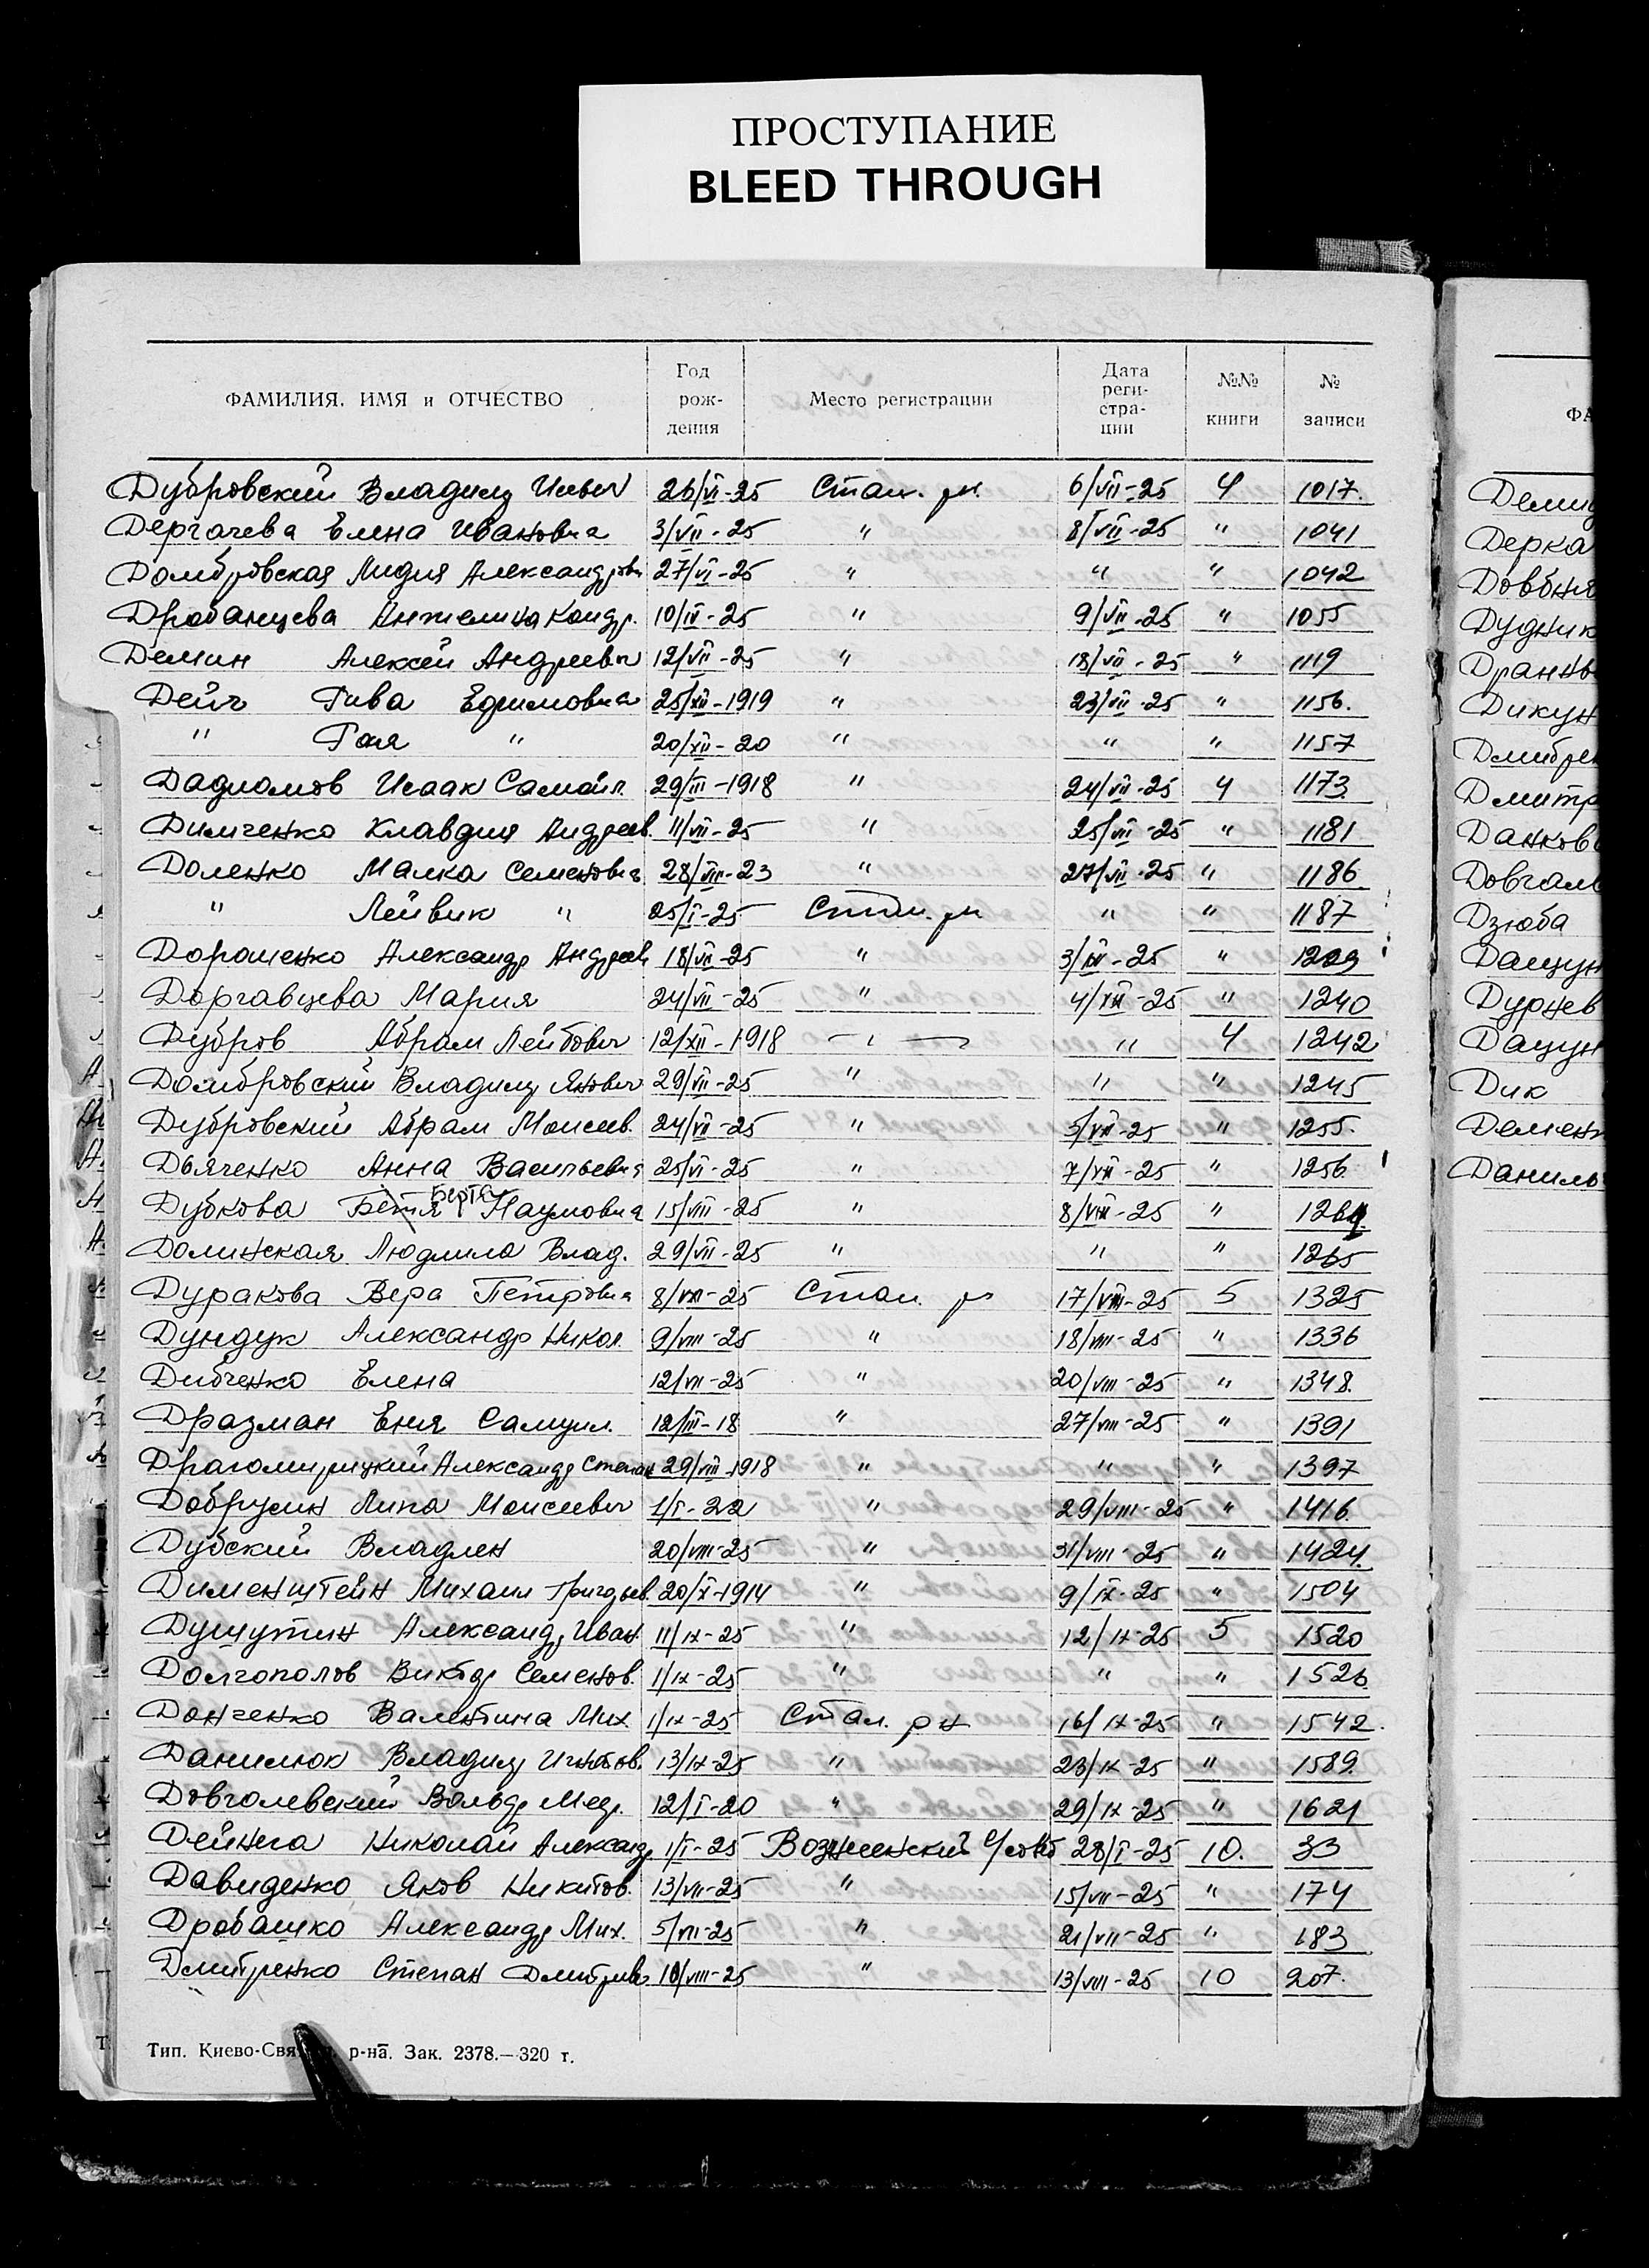 ПРОСТУПАНИЕ
BLEED THROUGH
ФАМИЛИЯ, ИМЯ и ОТЧЕСТВО Год рож-дения Место регистрации Дата реги-стра-ции №№ книги № записи
Дубровский Владимир Ильич 26/VI-25 Стал. рн. 6/VII-25 4 1017.
Дергачева Елена Ивановна 3/VII-25 " 8/VII-25 " 1041
Домбровская Лидия Александровн 27/VI-25 " " " 1042
Дробанцева Анжелина Кондр. 10/IV-25 " 9/VII-25 " 1055
Демин Алексей Андреевич 12/VII-25 " 18/VII-25 " 1119
Дейч Рива Ефимовна 25/XII-1919 " 23/VII-25 " 1156.
" Рая " 20/XII-20 " " " 1157
Дадиомов Исаак Самойл. 29/III-1918 " 24/VII-25 4 1173
Димченко Клавдия Андреев. 11/VII-25 " 25/VII-25 " 1181
Доленко Малка Семеновна 28/VII-23 " 27/VII-25 " 1186
" Лейвик " 25/I-25 Стал. рн " " 1187
Дорошенко Александр Андреев 18/VII-25 " 3/ -25 " 1229
Доргавцева Мария 24/VII-25 " 4/ -25 " 1240
Дубров Абрам Лейбович 12/XII-1918 — " — " 4 1242
Домбровский Владимир Янович 29/VII-25 " " " 1245
Дубровский Абрам Моисеев. 24/VII-25 " 5/VIII-25 " 1255.
Дьяченко Анна Васильевна 25/VI-25 " 7/VIII-25 " 1256
Дубкова Бетя Берта Наумовна 15/VIII-25 " 8/VIII-25 " 1264
Долинская Людмила Влад. 29/VII-25 " " " 1265
Дуракова Вера Петровна 8/ -25 Стал. рн 17/VIII-25 5 1325
Дундук Александр Никол. 9/VIII-25 " 18/VIII-25 " 1336
Дибченко Елена 12/VII-25 " 20/VIII-25 " 1348.
Дразман Еня Самуил. 12/III-18 " 27/VIII-25 " 1391
Драгомирецкий Александр Степан 29/VIII-1918 " " " 1397
Добрусин Липа Моисеевич 1/I-22 " 29/VIII-25 " 1416
Дубский Владлен 20/VIII-25 " 31/VIII-25 " 1424.
Дименштейн Михаил Григорьев. 20/X-1914 " 9/IX-25 " 1504
Александр Иван. 11/IX-25 " 12/IX-25 5 1520
Долгополов Виктор Семенов. 1/IX-25 " " " 1526
Донченко Валентина Мих. 1/IX-25 Стал. рн 16/IX-25 " 1542.
Данилюк Владимир Игнатов. 13/IX-25 " 23/IX-25 " 1589
Довголевский Вольдр 12/I-20 " 29/IX-25 " 1621
Дейнега Николай Александр 1/I-25 Вознесенский с/совет 28/I-25 10. 33
Давиденко Яков Никитов. 13/VII-25 " 15/VII-25 " 174
Дробашко Александр Мих. 5/VII-25 " 21/VII-25 " 183
Дмитренко Степан Дмитриев 10/VIII-25 " 13/VIII-25 10 207.
Тип. Киево-Свя р-на. Зак. 2378.—320 т.
ФА
Деми
Дерка
Довбня
Дудник
Дранко
Дикун
Дмитре
Дмитр
Данков
Довгал
Дзюба
Дацун
Дурнев
Дацун
Дик
Демен
Даниль